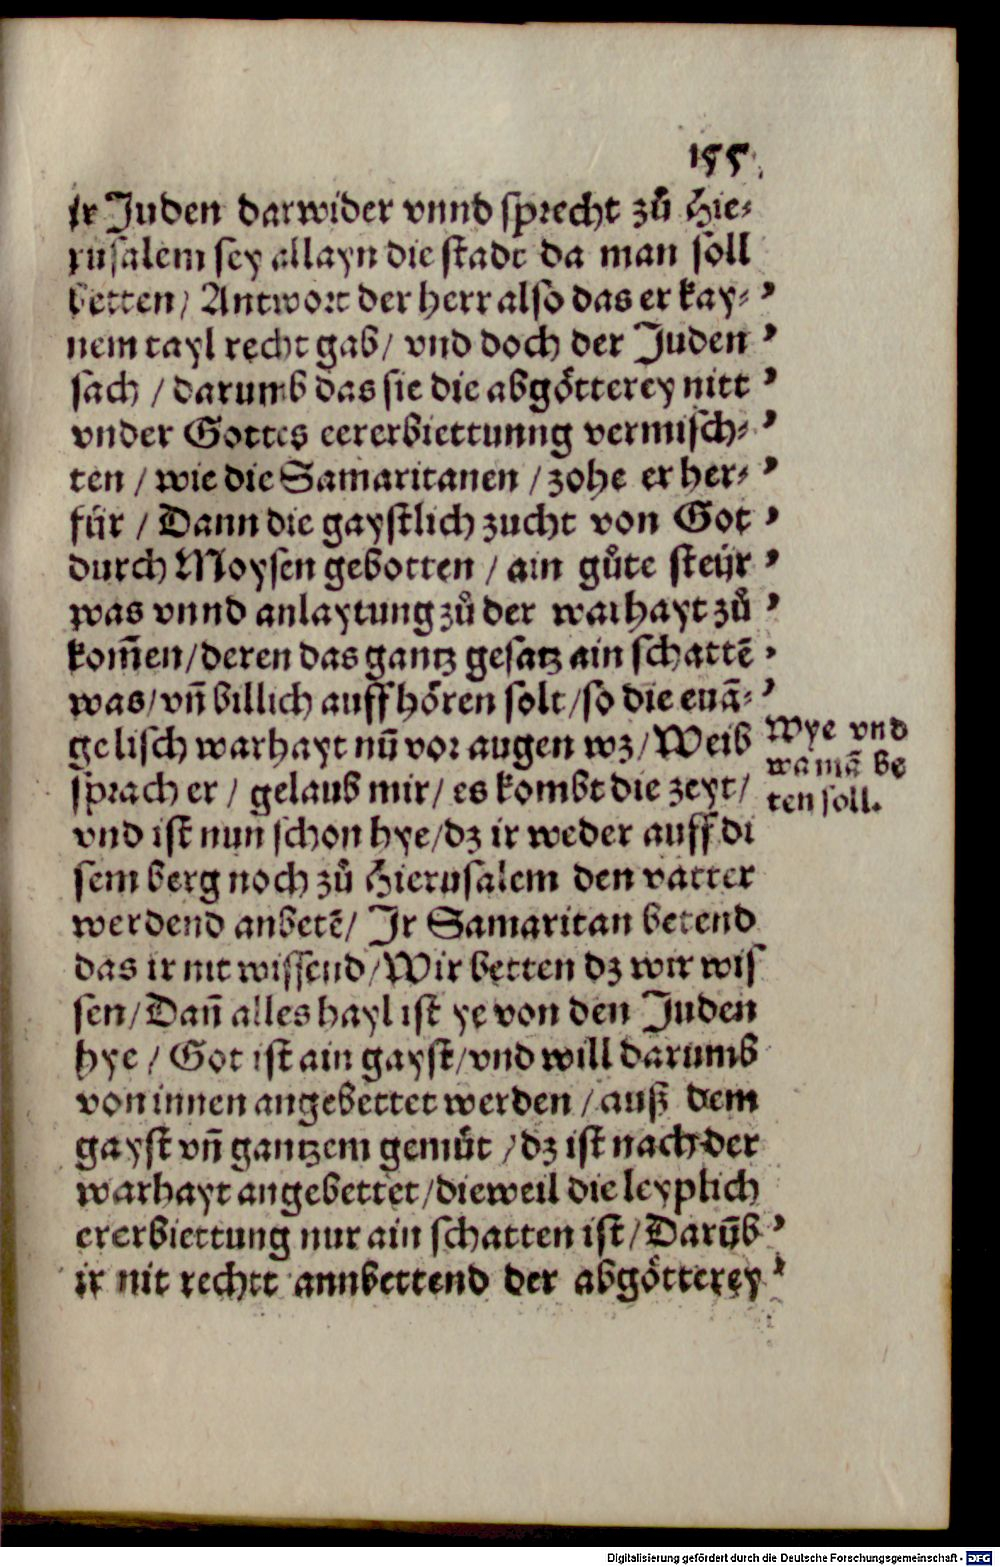 155.
ir Juden darwider vnnd sprecht zů Hie⸗
rusalem sey allayn die stadt da man soll
betten / Antwort der herr also das er kay⸗
nem tayl recht gab / vnd doch der Juden
sach / darumb das sie die abgötterey nitt
vnder Gottes eererbiettunng vermisch⸗
ten / wie die Samaritanen / zohe er her⸗
für / Dann die gaystlich zucht von Got
durch Moysen gebotten / ain gůte steür
was vnnd anlaytung zů der warhayt zů
kom̃en / deren das gantz gesatz ain schattẽ
was / vñ billich auffhören solt / so die euã⸗
gelisch warhayt nũ vor augen wz / Weib
sprach er / gelaub mir / es kombt die zeyt /
vnd ist nun schon hye / dz ir weder auff di
sem berg noch zů Hierusalem den vatter
werdend anbetẽ / Ir Samaritan betend
das ir nit wissend / Wir betten dz wir wis
sen / Dañ alles hayl ist ye von den Juden
hye / Got ist ain gayst / vnd will darumb
von innen angebettet werden / auß dem
gayst vñ gantzem gemüt / dz ist nach der
warhayt angebettet / dieweil die leyplich
ererbiettung nur ain schatten ist / Darũb
ir nit rechtt annbettend der abgötterey
Wye vnd
wa mã be
ten soll.
Digitalisierung gefördert durch die Deutsche Forschungsgemeinschaft - DFG